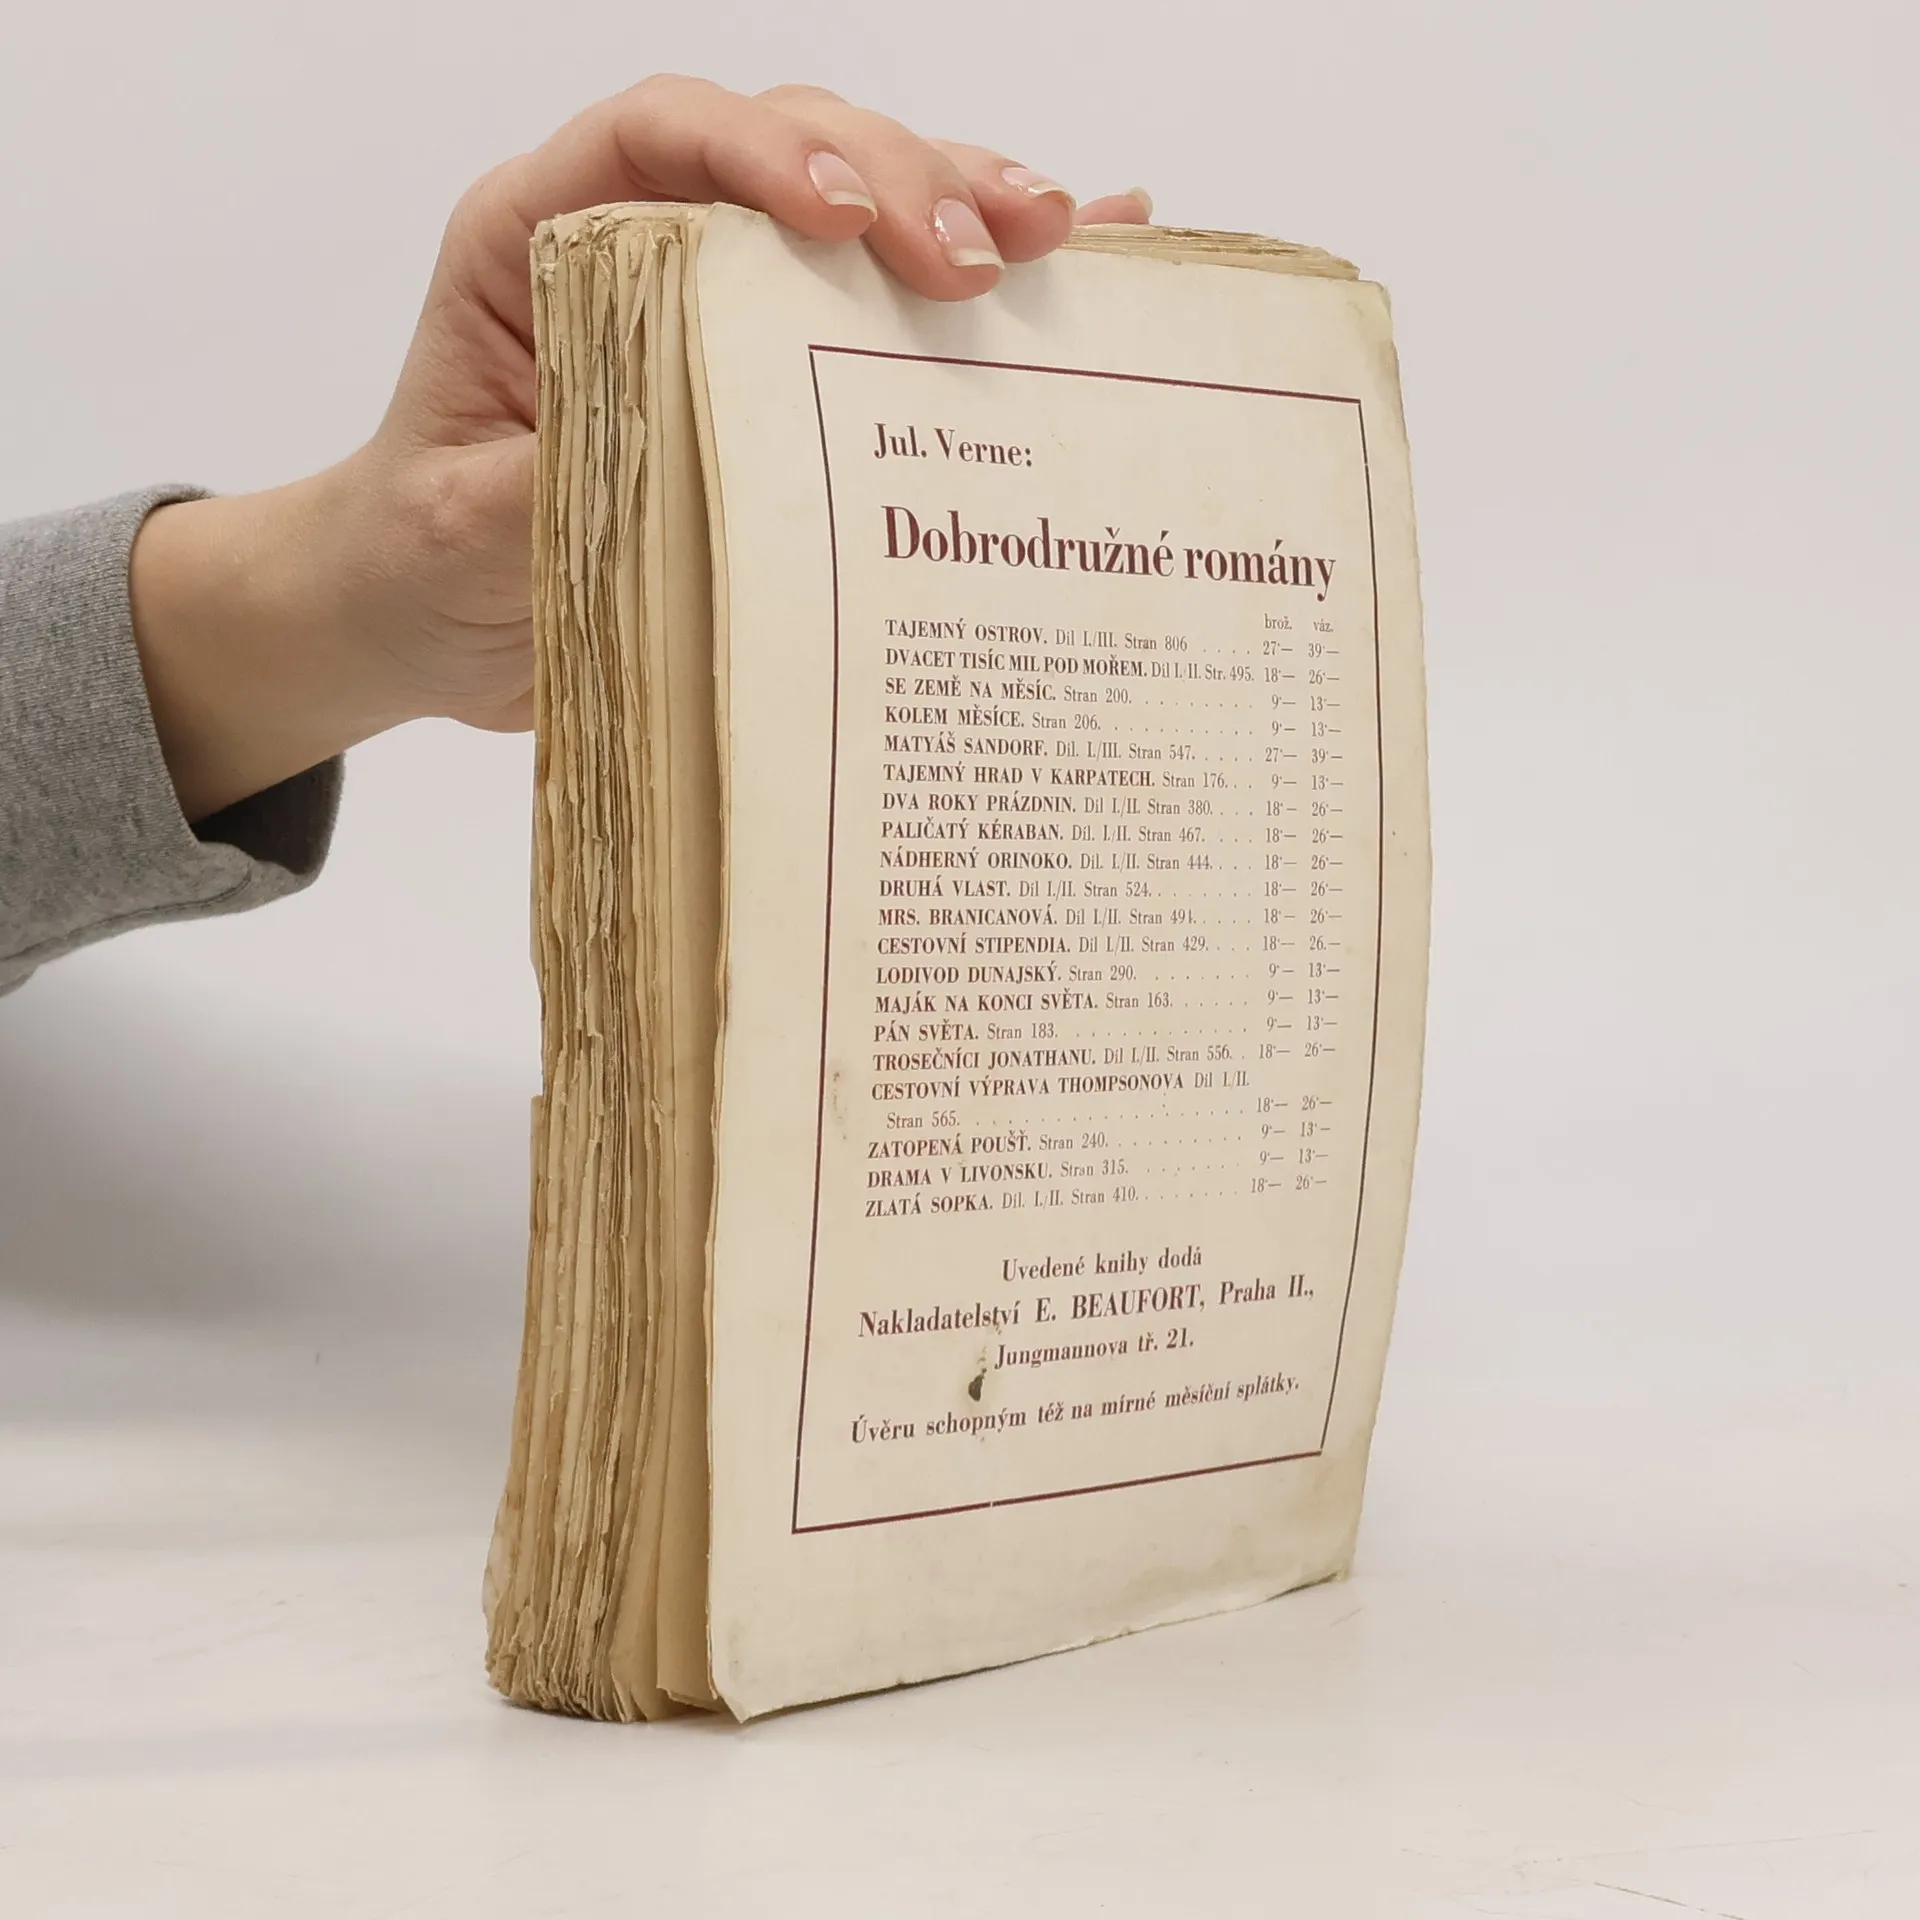 Jul. Verne:
Dobrodružné romány
brož. váz.
TAJEMNÝ OSTROV. Díl I./III. Stran 806 . . . . 27·— 39·—
DVACET TISÍC MIL POD MOŘEM. Díl I./II. Str. 495. 18·— 26·—
SE ZEMĚ NA MĚSÍC. Stran 200. . . . . . . . . 9·— 13·—
KOLEM MĚSÍCE. Stran 206. . . . . . . . . . . 9·— 13·—
MATYÁŠ SANDORF. Díl. I./III. Stran 547. . . . . 27·— 39·—
TAJEMNÝ HRAD V KARPATECH. Stran 176. . . 9·— 13·—
DVA ROKY PRÁZDNIN. Díl I./II. Stran 380. . . . 18·— 26·—
PALIČATÝ KÉRABAN. Díl. I./II. Stran 467. . . . 18·— 26·—
NÁDHERNÝ ORINOKO. Díl. I./II. Stran 444. . . . 18·— 26·—
DRUHÁ VLAST. Díl I./II. Stran 524. . . . . . . 18·— 26·—
MRS. BRANICANOVÁ. Díl I./II. Stran 491. . . . . 18·— 26·—
CESTOVNÍ STIPENDIA. Díl I./II. Stran 429. . . . 18·— 26.—
LODIVOD DUNAJSKÝ. Stran 290. . . . . . . . 9·— 13·—
MAJÁK NA KONCI SVĚTA. Stran 163. . . . . . 9·— 13·—
PÁN SVĚTA. Stran 183. . . . . . . . . . . . . 9·— 13·—
TROSEČNÍCI JONATHANU. Díl I./II. Stran 556. . 18·— 26·—
CESTOVNÍ VÝPRAVA THOMPSONOVA Díl I./II.
Stran 565. . . . . . . . . . . . . . . . . . . 18·— 26·—
ZATOPENÁ POUŠŤ. Stran 240. . . . . . . . . . 9·— 13·—
DRAMA V LIVONSKU. Stran 315. . . . . . . . 9·— 13·—
ZLATÁ SOPKA. Díl. I./II. Stran 410. . . . . . . . 18·— 26·—
Uvedené knihy dodá
Nakladatelství E. BEAUFORT, Praha II.,
Jungmannova tř. 21.
Úvěru schopným též na mírné měsíční splátky.